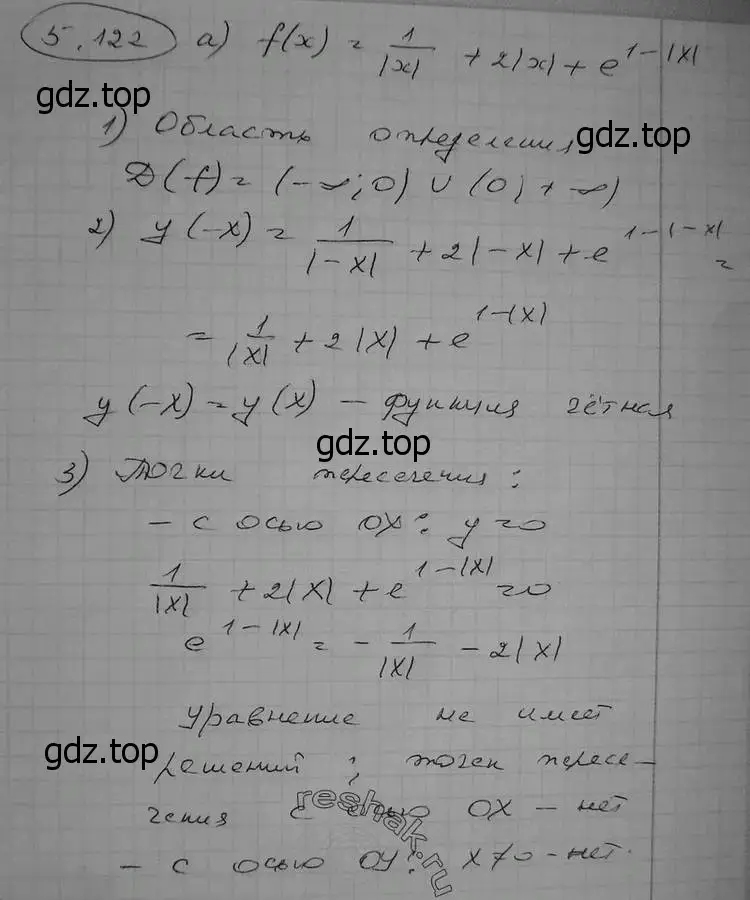 5.122 а) f(x) = 1/|x| + 2|x| + e^{1-|x|}
gdz.top
1) Область определения
gdz.top
D(f) = (-∞; 0) ∪ (0; +∞)
2) y(-x) = 1/|-x| + 2|-x| + e^{1-|-x|} =
= 1/|x| + 2|x| + e^{1-|x|}
y(-x) = y(x) — функция чётная
gdz.top
3) Точки пересечения:
- с осью OX: y=0
gdz.top
1/|x| + 2|x| + e^{1-|x|} = 0
e^{1-|x|} = - 1/|x| - 2|x|
уравнение не имеет
gdz.top
решений; точек пересе-
чения с осью OX - нет
reshak.ru
- с осью OY: x≠0 - нет.
gdz.top